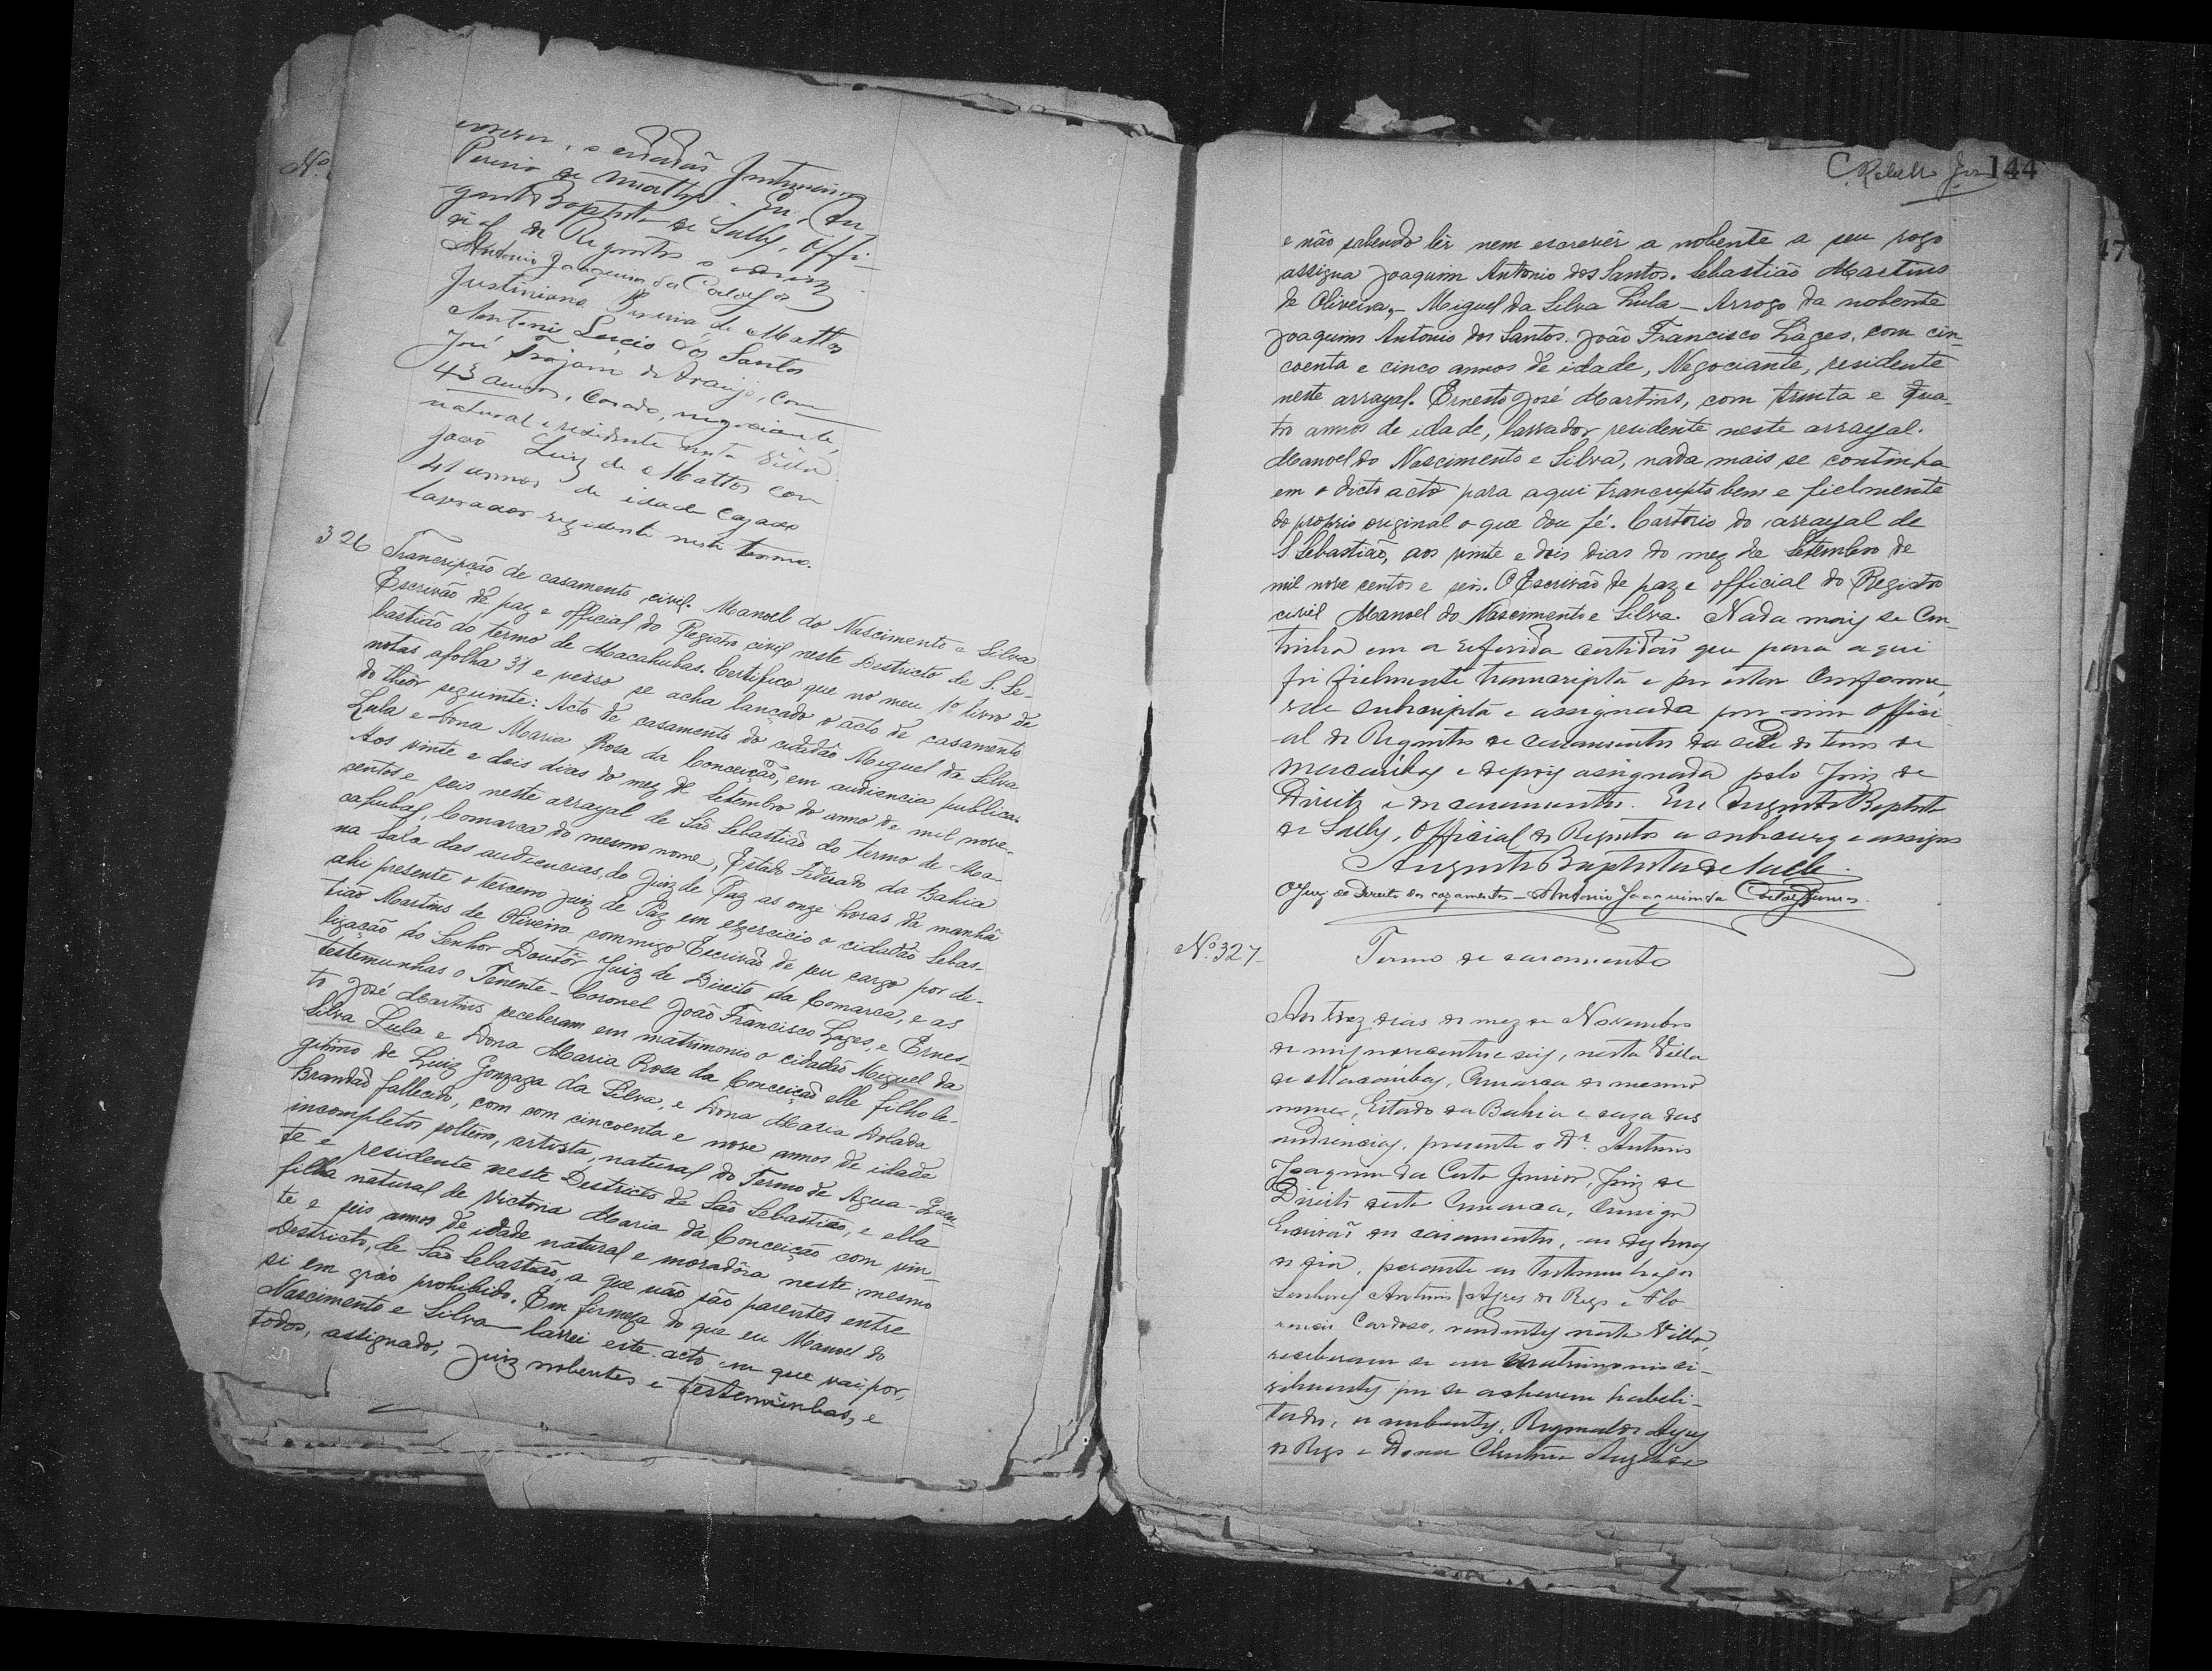 Nº
escrever, o cidadão Justiniano
Pereira de Mattos. Eu, Au-
gusto Baptista de Lully, offi-
cial de Registro o escrevi
Antonio Joaquim da Costa Jor
Justiniano Pereira de Mattos
Antonio Lucio dos Santos
José Trajano de Araujo, com
43 annos, Casado, negociante,
natural e residente nesta Villa
João Luiz de Mattos com
41 annos de idade Cazado
lavrador rezidente neste termo.
326 Trancripção de casamento civil. Manoel do Nascimento e Silva
Escrivão de paz e official do Registro civil neste Destricto de S. Se-
bastião do termo de Macahubas. Certifico que no meu 1º livro de
notas afolha 31 e verso se acha lançado o acto de casamento
do theôr seguinte: Acto de casamento do cidadão Miguel da Silva
Lula e Dona Maria Rosa da Conceição, em audiencia publica.
Aos vinte e dois dias do mez de Setembro do anno de mil nove-
centos e seis neste arrayal de São Sebastião do termo de Ma-
cahubas, Comarca do mesmo nome, Estado Federado da Bahia
na Sala das audiencias, do Juiz de Paz as onze horas da manhã
ahi presente o terceiro Juiz de Paz em exercicio o cidadão Sebas-
tião Martins de Oliveira commigo Escrivão de seu cargo por de-
ligação do Senhor Doutôr Juiz de Direito da Comarca, e as
testemunhas o Tenente-Coronel João Francisco Lages, e Ernes-
to José Martins receberam em matrimonio o cidadão Miguel da
Silva Lula e Dona Maria Rosa da Conceição elle filho le-
gitimo de Luiz Gonzaga da Silva, e Dona Maria
Brandão fallecido, com com cincoenta e nove annos de idade
incompletos solteiro, artista, natural do Termo de Agua-Quen-
te e residente neste Destricto de São Sebastião, e ella
filha natural de Victoria Maria da Conceição com vin-
te e seis annos de idade natural e moradôra neste mesmo
Destricto, de São Sebastião, a que não são parentes entre
si em gráo prohibido. Em firmeza do que eu Manoel do
Nascimento e Silva lavrei este acto em que vai por,
todos, assignado, Juiz nobentes e testemunhas, e
144
e não sabendo lêr nem escrevêr a nobente a seu rogo
assigna Joaquim Antonio dos Santos. Sebastião Martins
de Oliveira,- Miguel da Silva Lula - Arrogo da nobente
Joaquim Antonio dos Santos. João Francisco Lages, com cin-
coenta e cinco annos de idade, Negociante, residente
neste arrayal. Ernesto José Martins, com trinta e qua-
tro annos de idade, lavrador residente neste arrayal.
Manoel do Nascimento e Silva, nada mais se continha
em o dicto acto para aqui trancripto bem e fielmente
do proprio original o que dou fé. Cartorio do arrayal de
S Sebastião, aos vinte e dois dias do mez de Setembro de
mil nove centos e seis. O Escrivão de paz e official do Registro
civil Manoel do Nascimento e Silva. Nada mais se Con-
tinha em a referida certidão que para aqui
foi fielmente transcripta e por estar Conforme
vae subscripta e assignada por mim Offici-
al de Registro de casamentos da séde do termo de
Macaúbas e depois assignada pelo Juiz de
Direito e de casamentos. Eu Augusto Baptista
de Lully, Official de Registro a subscrevy e assigno
Augusto Baptista de Lully.
O Juiz de Direito dos cazamentos - Antonio Joaquim da Costa Junior.
Nº 327 Termo de casamento
Aos trez dias do mez de Novembro
de mil novecentos e seis, nesta Villa
de Macaúbas, Comarca do mesmo
nome, Estado da Bahia e caza das
audiencias, presente o Dr. Antonio
Joaquim da Costa Junior, Juiz de
Direito desta Comarca, Commigo
Escrivão de casamentos, as dez horas
do dia, perante as testemunhas os
Senhores Antonio Ayres do Rego e Flo
rencio Cardoso, residentes nesta Villa,
receberam se em matrimonio ci-
vilmente por se acharem habili-
tados, os nubentes, Reginaldo Ayres
do Rego e Dona